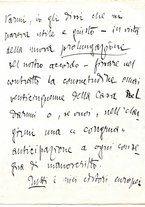 Parmi, in gli dissi che mi
pareva utile e giusto – in vista
della nuova prolungazione
del nostro accordo – fissare nel
contratto la consuetudine ormai
venticinquenne della Casa del
darmi o, se vuoi, nell'
farmi una "congrua"
anticipazione a ogni conse
gna di manoscritto.
Tutti i miei editori europei